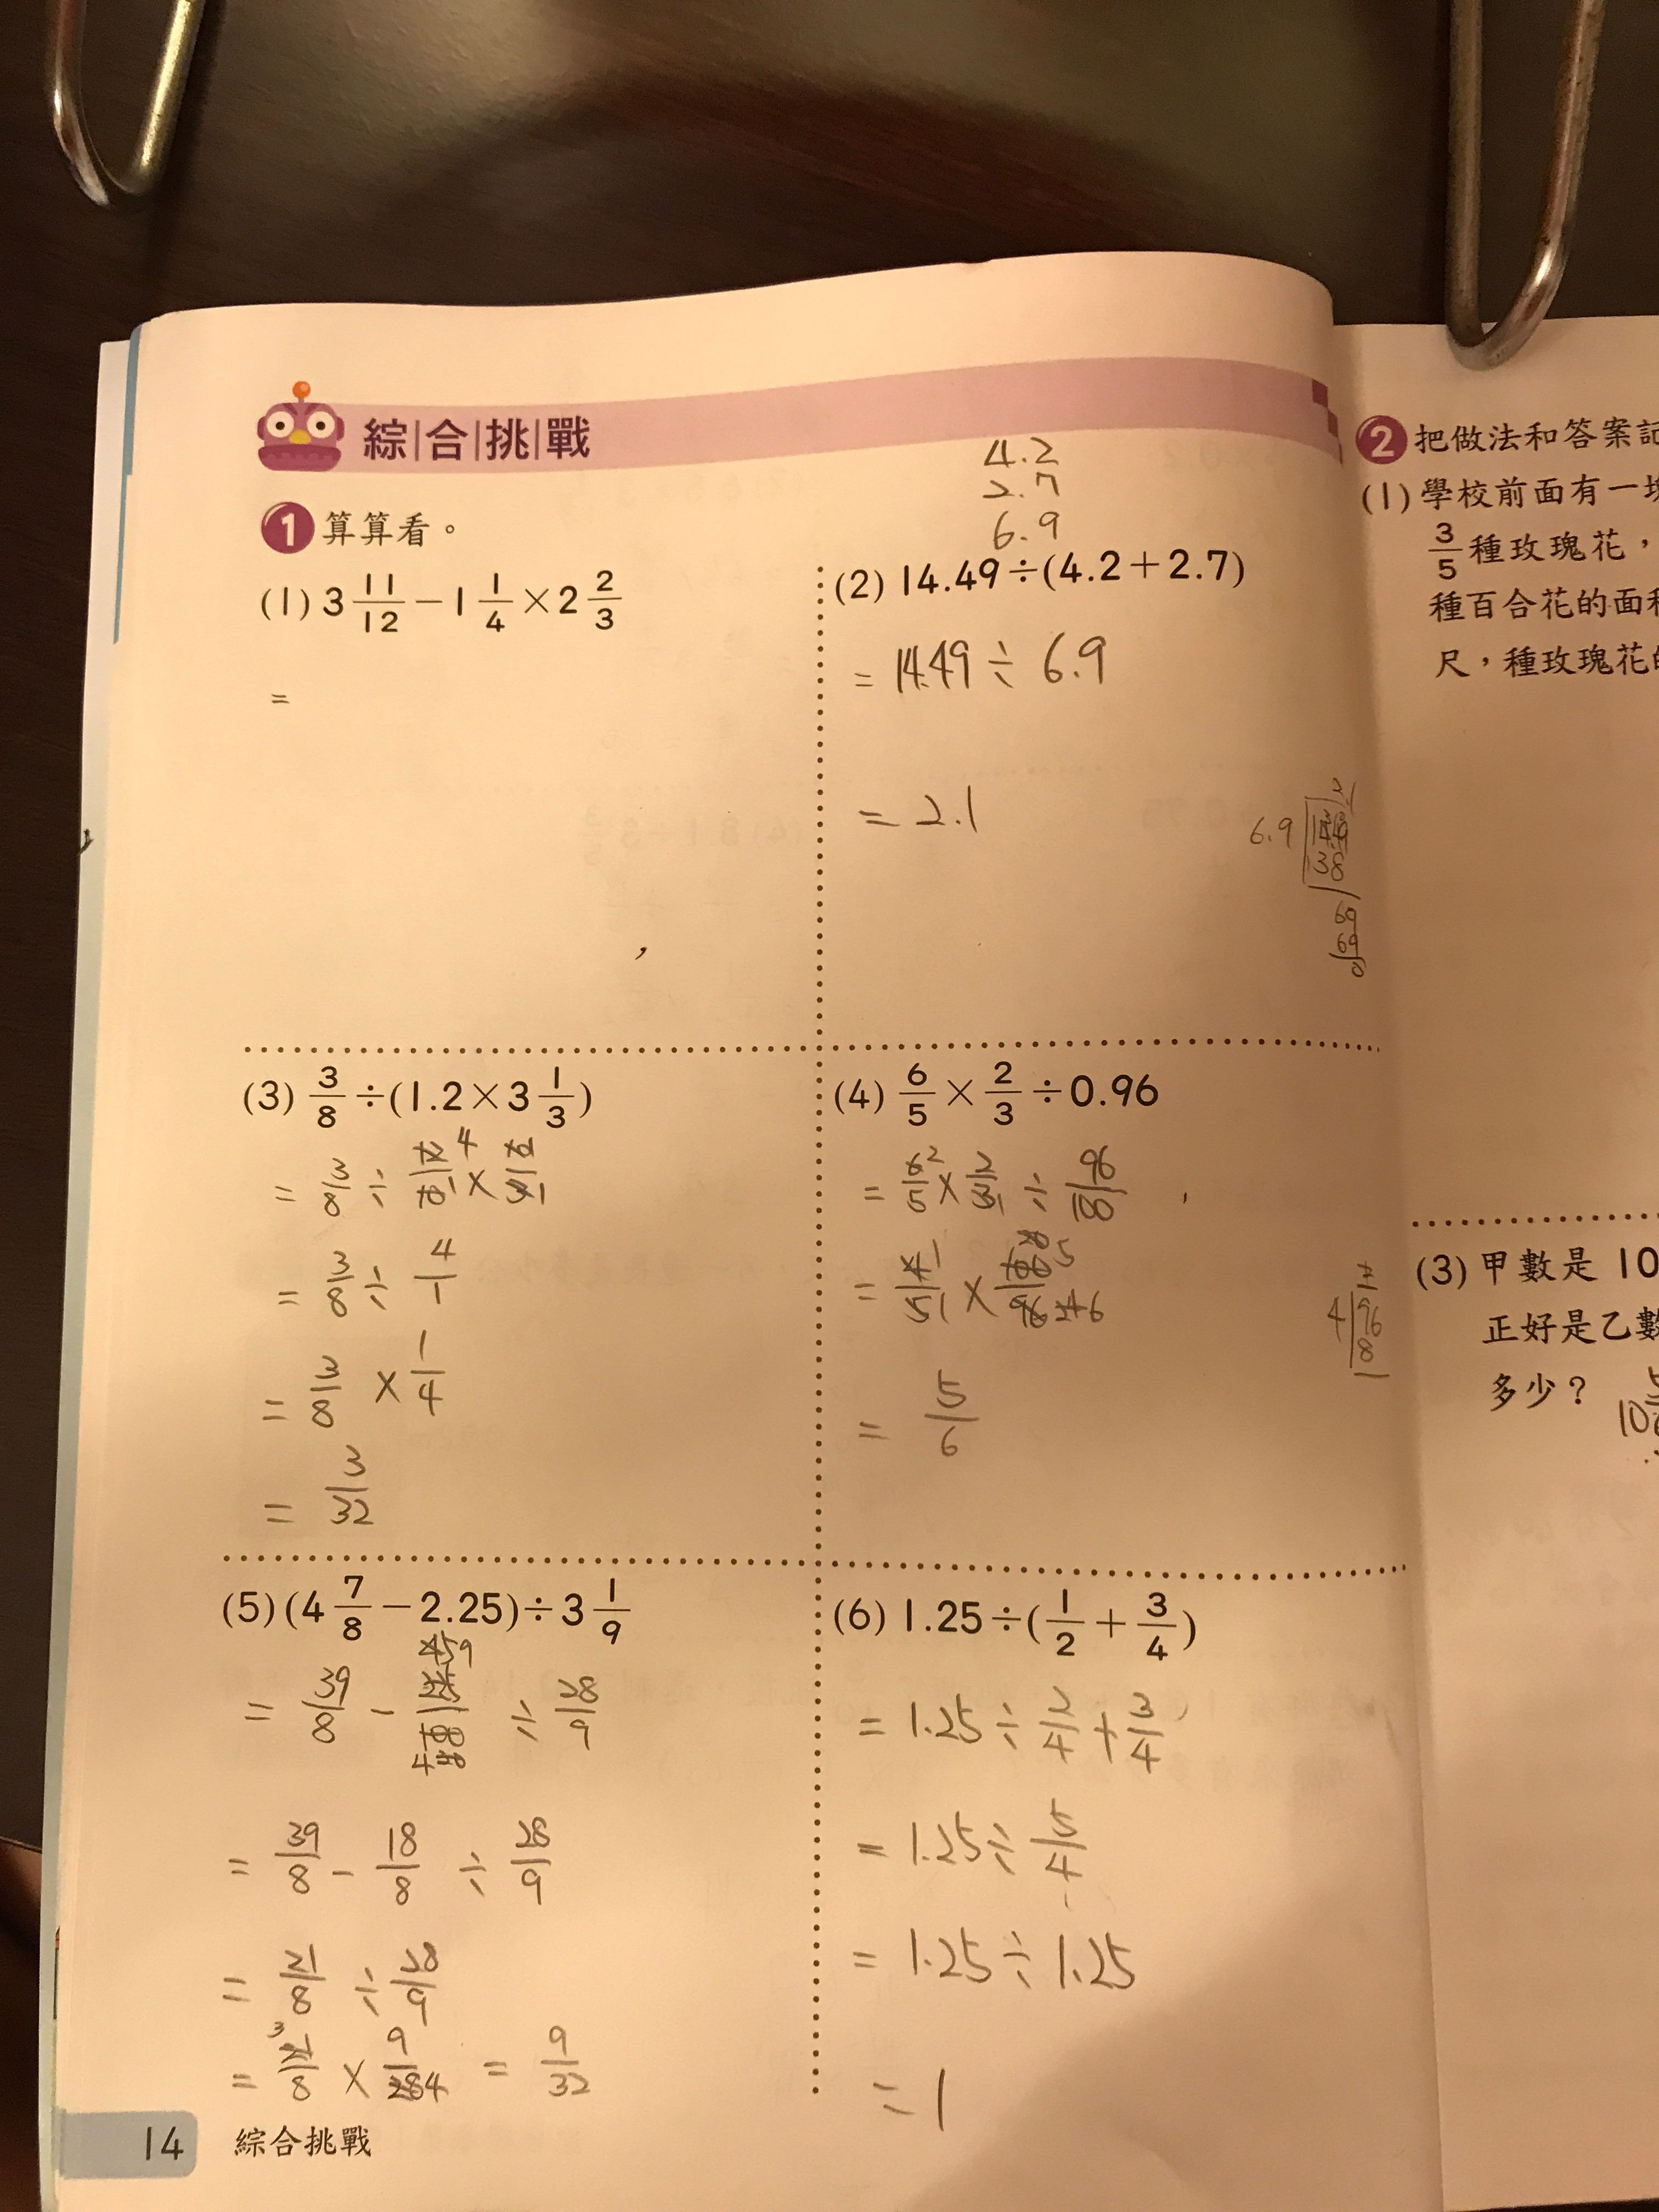 綜合挑戰
1 算算看。
(1) 3 11/12 − 1 1/4 × 2 2/3
=
4.2
2.7
6.9
(2) 14.49÷(4.2＋2.7)
= 14.49 ÷ 6.9
= 2.1
6.9
69
69
0
(3) 3/8 ÷(1.2×3 1/3)
= 3/8 ÷ 4
= 3/8 ÷ 4/1
= 3/8 × 1/4
= 3/32
(4) 6/5 × 2/3 ÷0.96
= 6/5 2 × 2/3 1 ÷ 96/100
= 4/5 1 1 × 100/96 5 24 6
= 5/6
4 96
8
1
(5) (4 7/8 −2.25)÷3 1/9
= 39/8 − 225/100 45 9 ÷ 28/9
= 39/8 − 18/8 ÷ 28/9
= 21/8 ÷ 28/9
= 3 21/8 × 9/28 4 = 9/32
(6) 1.25÷(1/2 ＋ 3/4)
= 1.25 ÷ 2/4 + 3/4
= 1.25 ÷ 5/4
= 1.25 ÷ 1.25
= 1
14 綜合挑戰
2 把做法和答案記
(1) 學校前面有一塊
3/5 種玫瑰花，
種百合花的面積
尺，種玫瑰花的
(3) 甲數是 10
正好是乙數
多少？